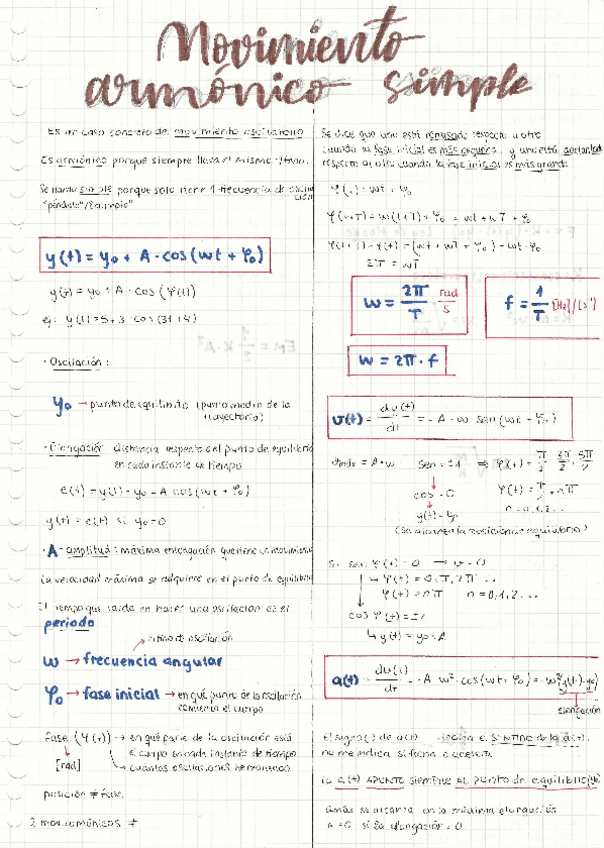 Movimiento
armónico simple
Es un caso concreto del movimiento oscilatorio
Es armónico porque siempre lleva el mismo ritmo.
Se llama simple porque solo tiene 1 frecuencia de oscila
ción
"péndulo"
y(t) = y₀ + A · cos (wt + φ₀)
y(t) = y₀ + A · cos (φ(t))
ej: y(t) = 5 + 3 · cos (3t + 4)
· Oscilación:
y₀ → punto de equilibrio (punto medio de la
trayectoria)
· Elongación: distancia respecto del punto de equilibrio
en cada instante de tiempo
e(t) = y(t) - y₀ = A · cos (wt + φ₀)
y(t) = e(t) si y₀ = 0
· A - amplitud: máxima enlongación que tiene un movimiento
La velocidad máxima se adquiere en el punto de equilibrio
El tiempo que tarda en hacer una oscilación es el
periodo
ritmo de oscilación
w → frecuencia angular
φ₀ → fase inicial → en qué punto de la oscilación
comienza el cuerpo
Fase (φ(t)) → en qué parte de la oscilación está
el cuerpo en cada instante de tiempo
[rad] → cuántas oscilaciones
posición ≠ fase.
2 mov. armónicos ≠
Se dice que uno está retrasado respecto a otro
cuando su fase inicial es más pequeña y uno está adelantado
respecto al otro cuando la fase inicial es más grande
φ(t) = wt + φ₀
φ(t+T) = w(t+T) + φ₀ = wt + wT + φ₀
φ(t+T) - φ(t) = (wt + wT + φ₀) - wt - φ₀
2π = wT
w = 2π/T rad/s
f = 1/T [Hz] / [s⁻¹]
w = 2π · f
v(t) = dy(t)/dt = - A · w · sen (wt + φ₀)
vmáx = A · w sen = ±1 ⇒ φ(t) = π/2, 3π/2, 5π/2
cos = 0 φ(t) = π/2 + nπ
y(t) = y₀ n = 0, 1, 2...
(se alcanza la posición de equilibrio)
Si sen φ(t) = 0 → v = 0
↳ φ(t) = 0, π, 2π...
φ(t) = nπ n = 0, 1, 2...
cos φ(t) = ±1
↳ y(t) = y₀ ± A
a(t) = dv(t)/dt = - A · w² · cos (wt + φ₀) = - w² (y(t) - y₀)
elongación
El signo (-) de a(t) indica el SENTIDO de la a(t).
no me indica si frena o acelera.
La a(t) APUNTA SIEMPRE AL PUNTO de EQUILIBRIO (y₀)
amáx se alcanza en la máxima elongación
a = 0 si la elongación = 0